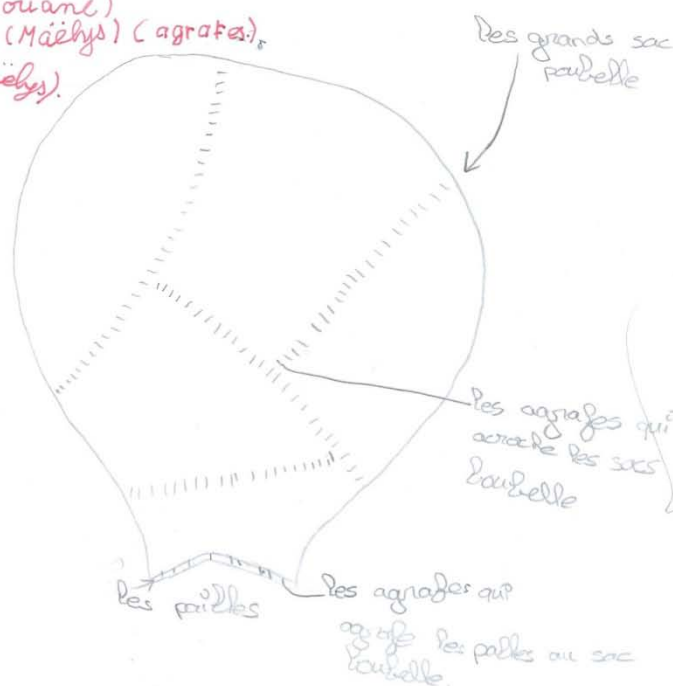 ouane)
(Mäëlys) (agrafes).
ëlys).
Des grands sac
poubelle
les agrafes qui
acroche les sacs
boubelle
les pailles
les agrafes qui
agrafe les pailles au sac
boubelle